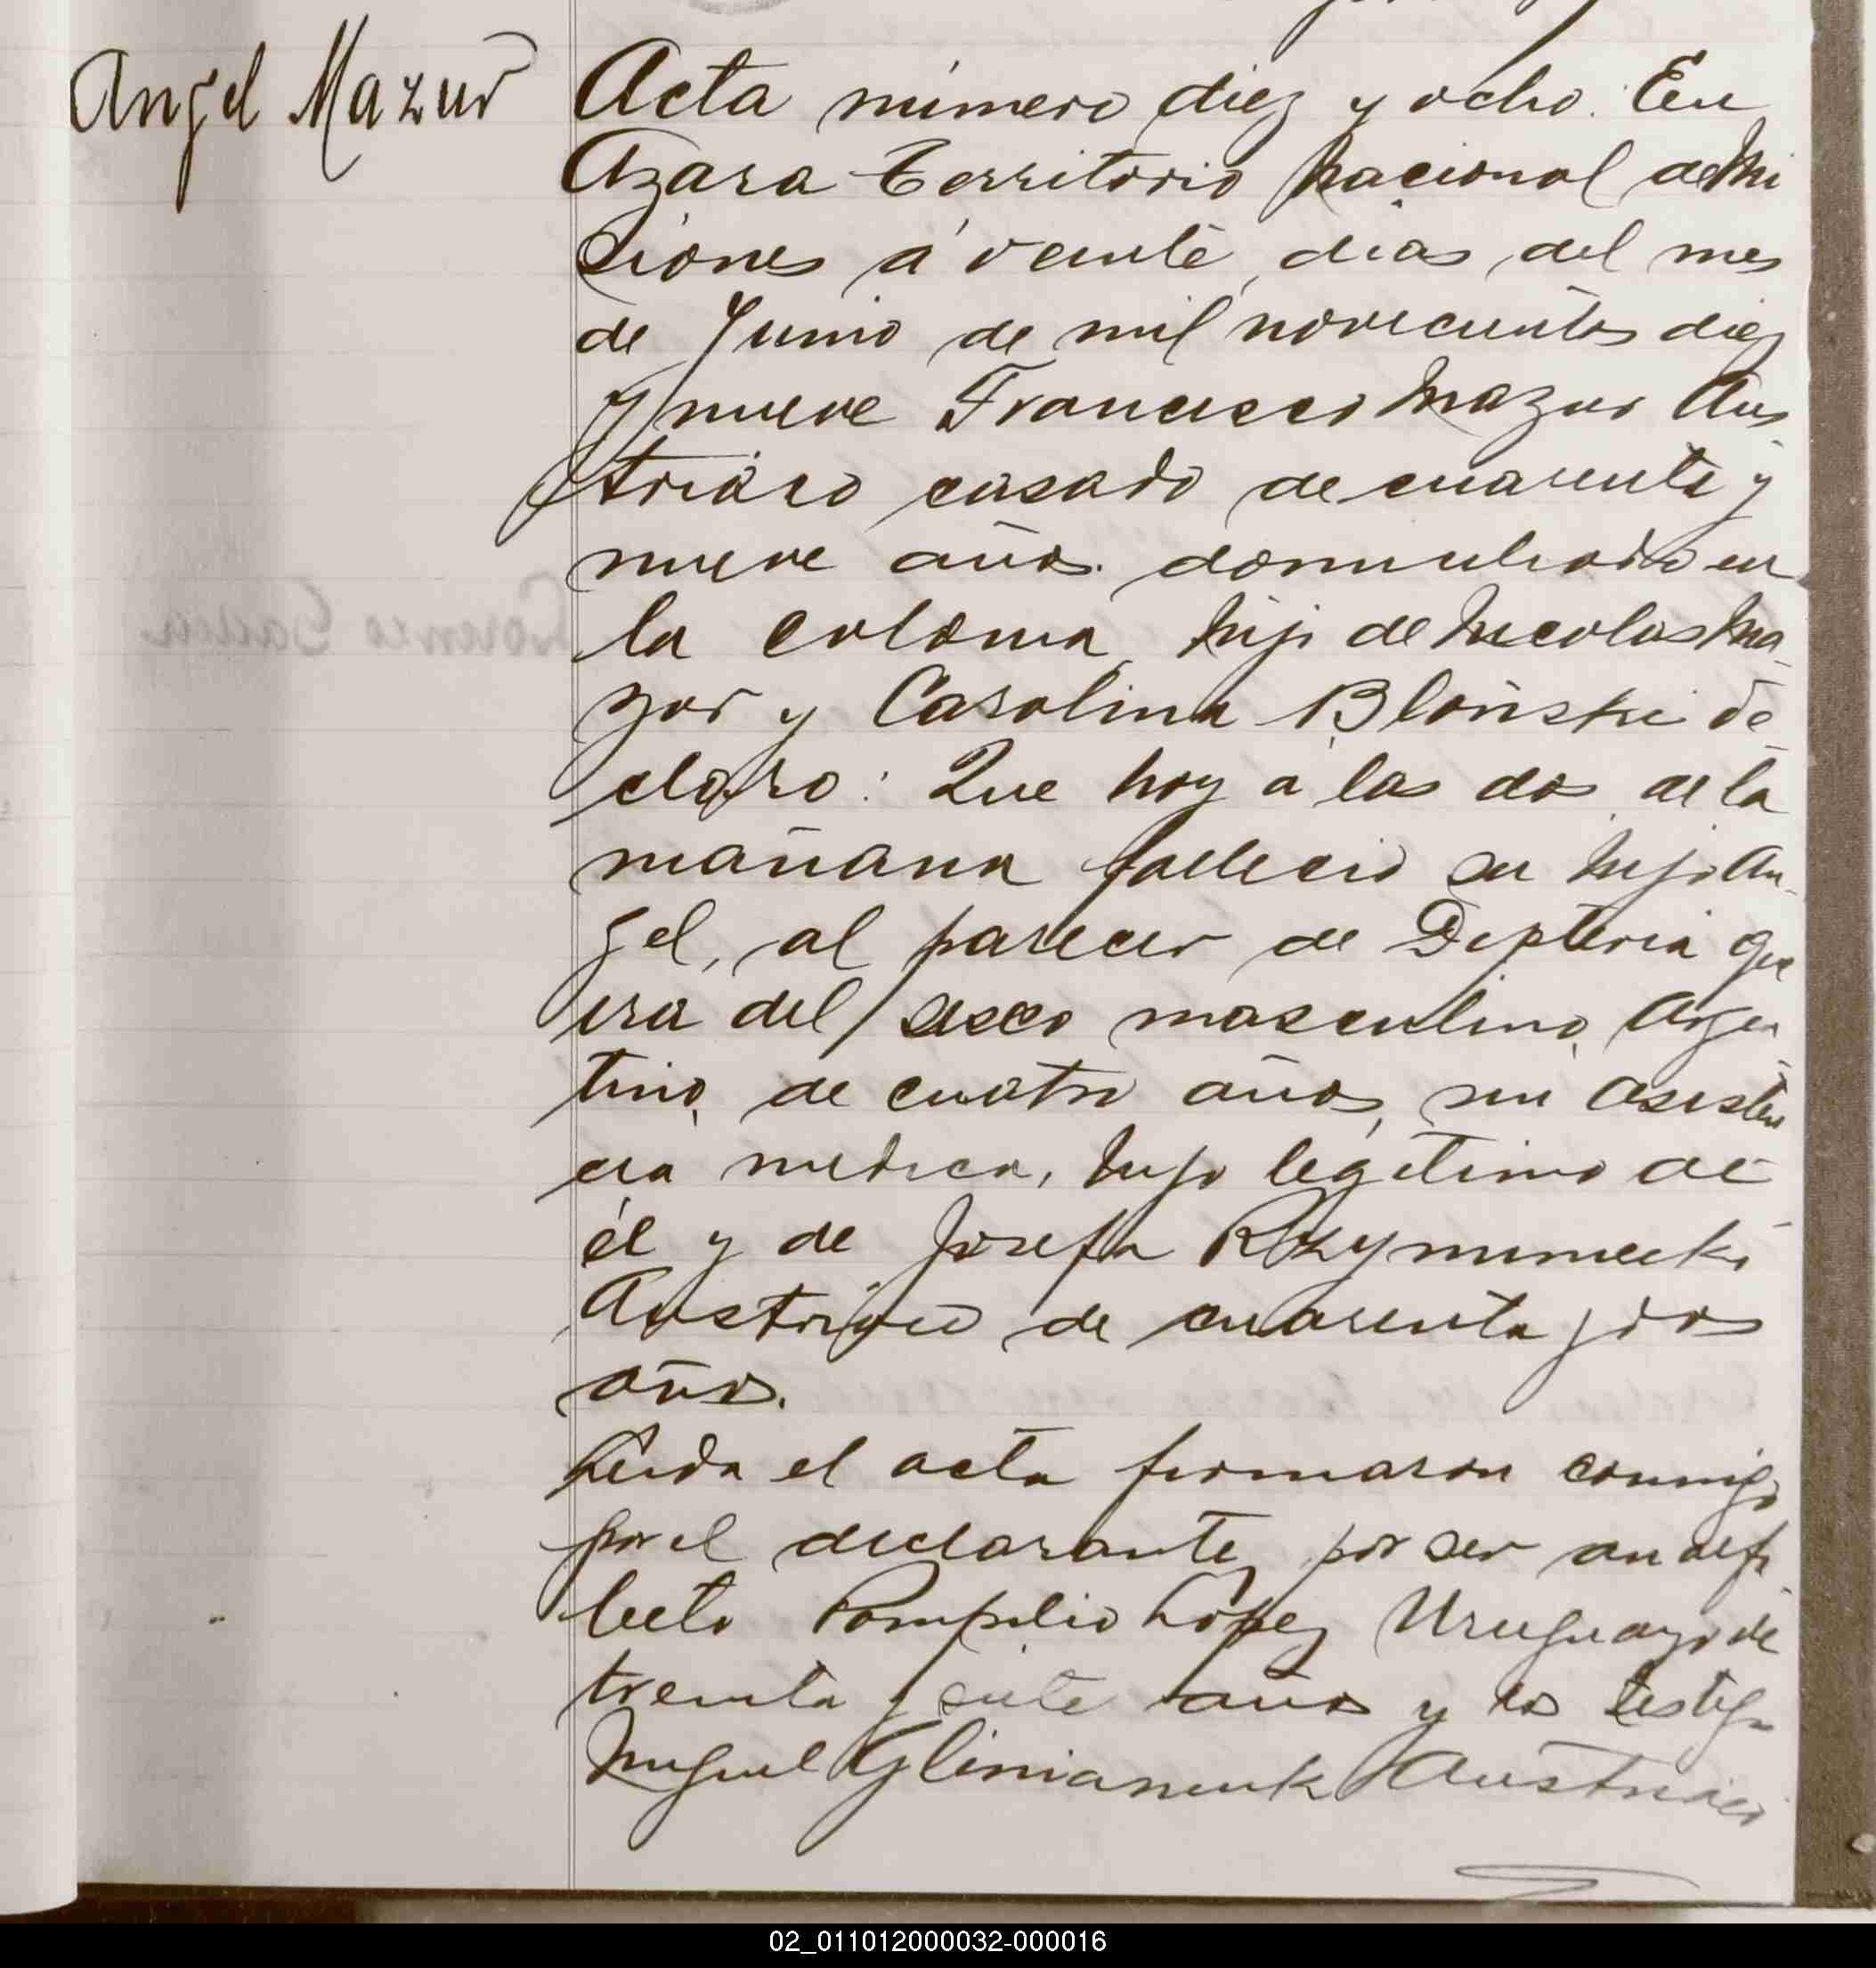 Angel Mazur
Acta número diez y ocho. En
Azara Territorio Nacional de Mi
siones á veinte dias del mes
de Junio de mil novecientos diez
y nueve Francisco Mazur Aus
triaco casado de cuarenta y
nueve años. domiciliado en
la colonia hijo de Nicolas Ma-
zur y Carolina Bloński de
claro: Que hoy a las dos de la
mañana fallecio su hijo An-
gel, al parecer de Dipteria que
era del sexo masculino Argen
tino, de cuatro años, sin asisten
cia medica, hijo legitimo de
él y de Josefa
Austriaca de cuarenta y dos
años.
Leida el acta firmaron conmigo
por el declarante, por ser analfa
beto Pompilio López Uruguayo de
treinta y siete años y los testigos
Miguel Glinianiuk Austriaco
02_011012000032-000016